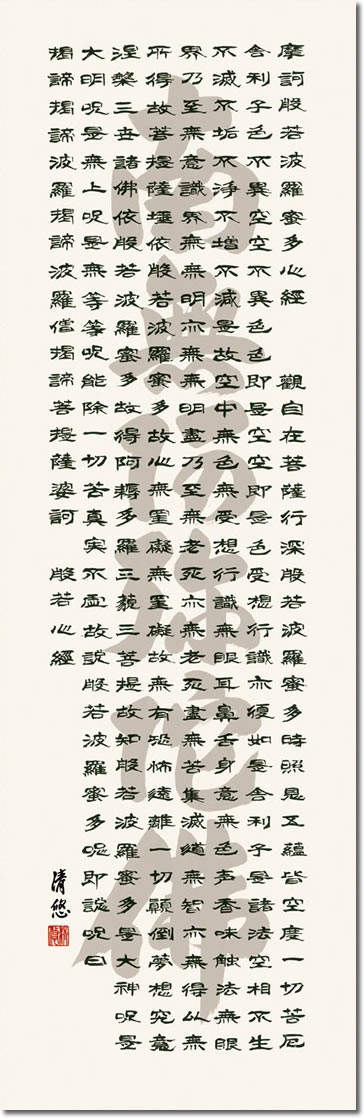 摩訶般若波羅蜜多心經　觀自在菩薩行深般若波羅蜜多時照見五蘊皆空度一切苦厄
舍利子色不異空空不異色色即是空空即是色受想行識亦復如是舍利子是諸法空相不生
不滅不垢不淨不增不減是故空中無色無受想行識無眼耳鼻舌身意無色声香味触法無眼
界乃至無意識界無無明亦無無明盡乃至無老死亦無老死盡無苦集滅道無智亦無得以無
所得故菩提薩埵依般若波羅蜜多故心無罣礙無罣礙故無有恐怖遠離一切顛倒夢想究竟
涅槃三世諸佛依般若波羅蜜多故得阿耨多羅三藐三菩提故知般若波羅蜜多是大神呪是
大明呪是無上呪是無等等呪能除一切苦真実不虚故説般若波羅蜜多呪即説呪曰
揭諦揭諦波羅揭諦波羅僧揭諦菩提薩婆訶　般若心經
清悠
南無阿弥陀佛